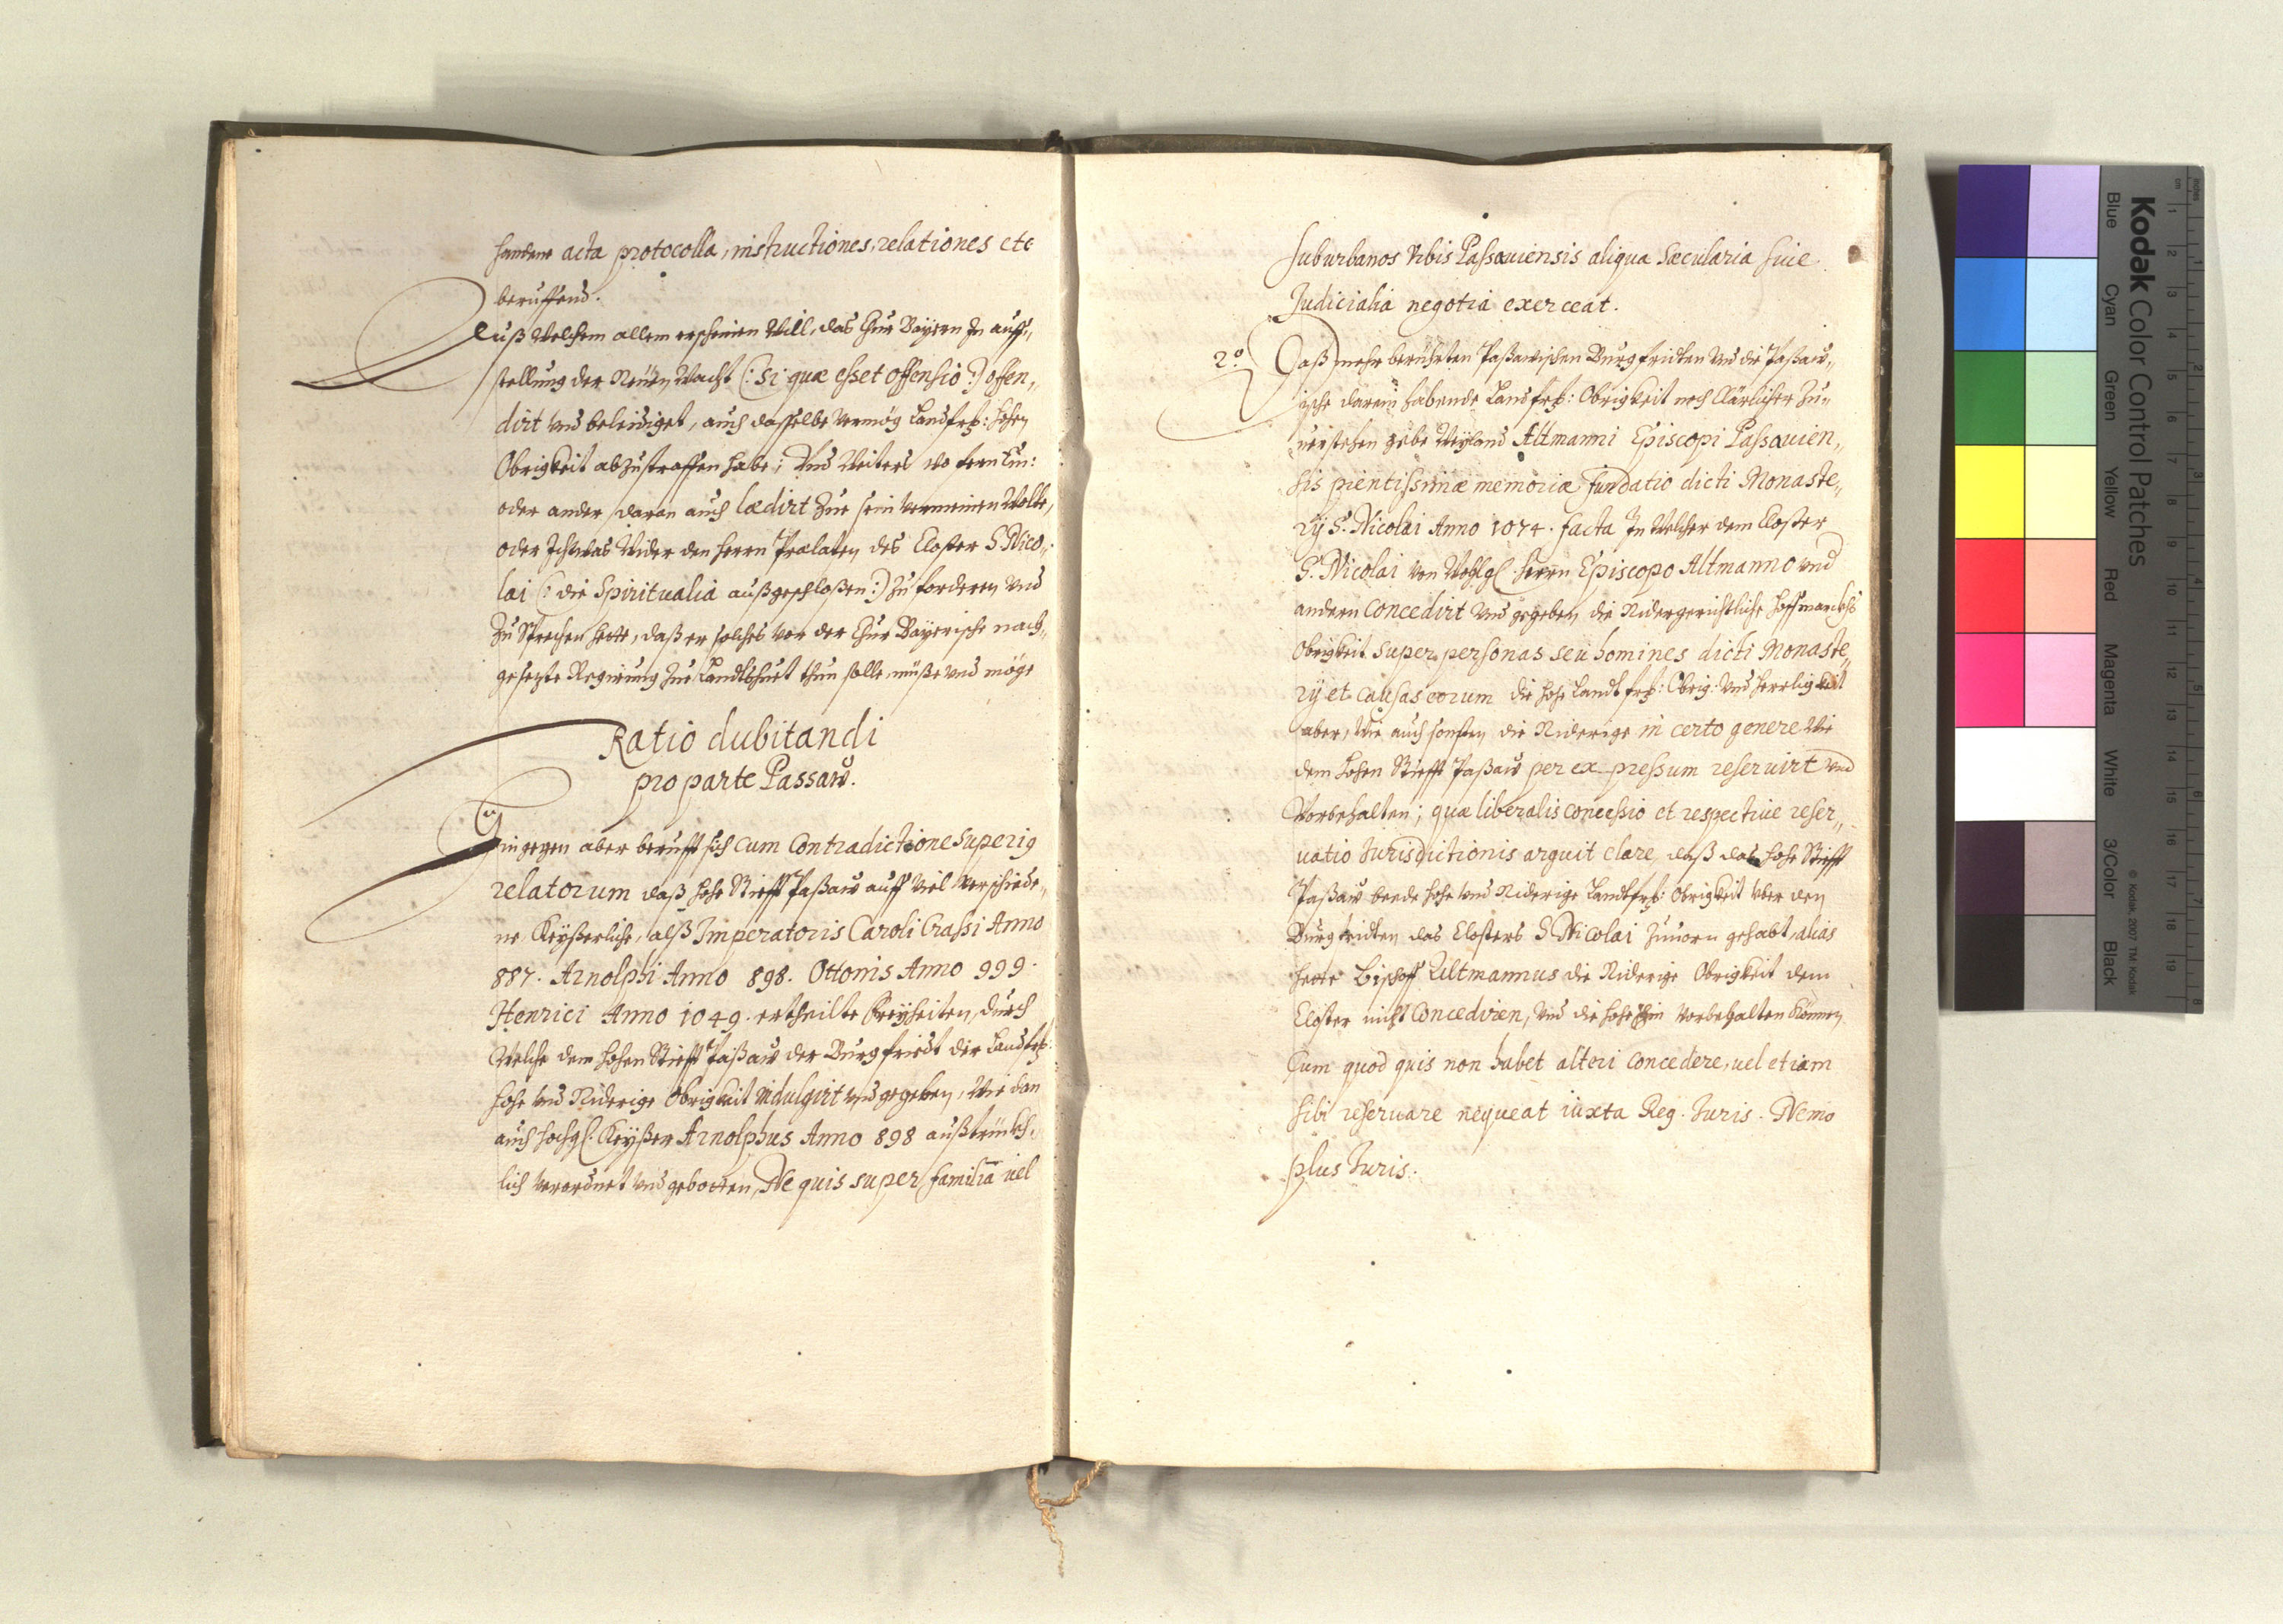 handene acta protocolla, instructiones, relationes etc
beruffend.
Auß Welchem allem erscheinen Will, das Chur Bayrn In auff„
stellung der Neuen Wacht (: si quæ esset offensio :) offen„
dirt vnd beleidiget, auch dasselbe vermög Landsfrl: hohen
Obrigkeit abzustraffen habe; Vnd Weiters wo fern Ein:
oder ander, daran auch lædirt zue sein vermeinen Wolte,
oder Ichtwas Wider den herrn Prælaten des Closter S Nico„
lai (: die Spiritualia außgeschloßen :) zu forderen vnd
Zu Sprechen hette, daß er solches vor der Chur Bayerische nach„
gesezte Regirung Zue Landtshuet thun solle, müße vnd möge
Ratio dubitandi
pro parte Passaw.
Hingegen aber berufft sich cum Contradictione superig
relatorum daß hohe Stifft Paßaw auff viel verschiede„
ne Keyßerliche, alß Imperatoris Caroli Crassi Anno
887. Arnolphi Anno 898. Ottonis Anno 999.
Henrici Anno 1049. ertheilte Freyheiten, durch
Welche dem hohen Stifft Paßaw der Burgfridt die Landsfrl:
hohe vnd Niderige Obrigkeit indulgirt vnd gegeben, Wie dan
auch hochgl. Keyßer Arnolphus Anno 898 außtrückh„
lich verordnet vnd gebotten, Ne quis super familiã vel
suburbanos Vrbis Passauiensis aliqua sæcularia siue
Judicialia negotia exerceat.
2º. Daß mehr berührten Paßawischen Burgfridten vnd die Paßaw„
ische darein habende Landsfrl: Obrigkeit noch Clärlicher Zu„
verstehen gebe Weyland Altmanni Episcopi Passauien„
sis pientissimæ memoriæ fundatio dicti Monaste„
rÿ S. Nicolai Anno 1074. facta In Welcher dem Closter
S. Nicolai von Wohlgl. herrn Episcopo Altmanno vnd
andern Concedirt vnd gegeben die Nidergerichtliche hoffmarckhs
Obrigkeit super personas seu homines dicti Monaste„
rÿ et causas eorum die hohe Landtsfrl: Obrig: vnd herrligkeit
aber, Wie auch sonsten die Niderige in certo genere Wie
dem hohen Stifft Paßaw per expressum reseruirt vnd
Vorbehalten; quæ liberalis concessio et respectiue reser„
uatio Jurisdictionis arguit clare, daß das hohe Stifft
Paßaw beede hohe vnd Niderige Landtsfrl: Obrigkeit vber den
Burgfridten das Closters S Nicolai Zuuorn gehabt, alias
hette Bischoff Altmannus die Niderige Obrigkeit dem
Closter nicht Concediren, vnd die hohe Ihm vorbehalten können
Cum quod quis non habet alteri concedere, uel etiam
sibi reseruare nequeat iuxta Reg. Juris. Nemo
plus Juris.
Kodak Color Control Patches
Blue Cyan Green Yellow Red Magenta White 3/Color Black
© Kodak, 2007 TM: Kodak
inches 1 2 3 4 5 6 7 8
cm 1 2 3 4 5 6 7 8 9 10 11 12 13 14 15 16 17 18 19